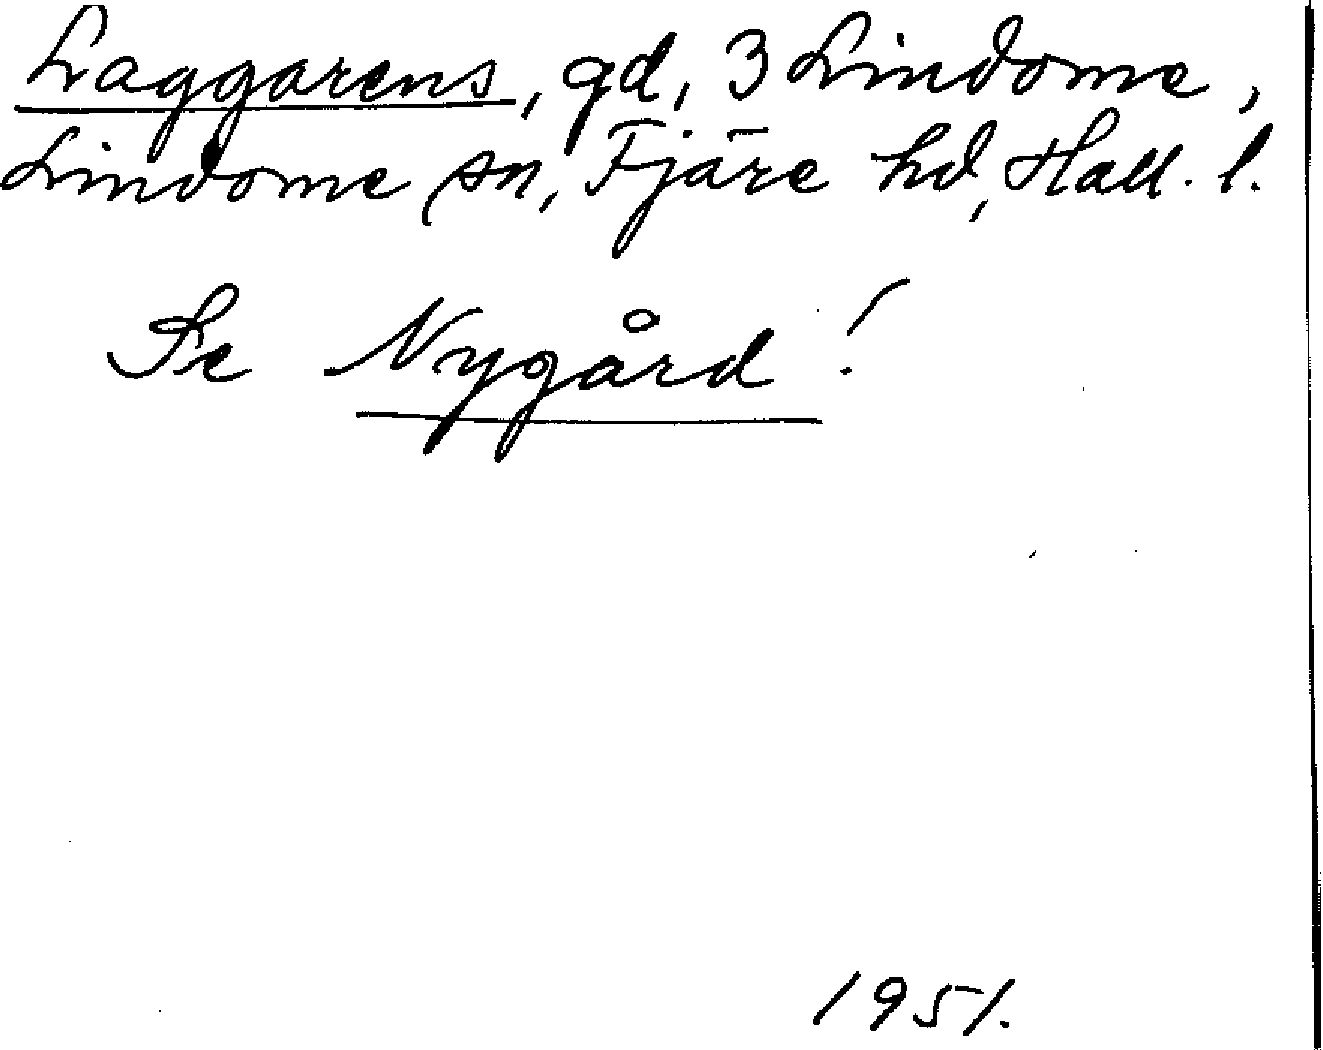 Laggarens, gd, 3 Lindome,
Lindome sn, Fjäre hd, Hall. l.
Se Nygård!
1951.